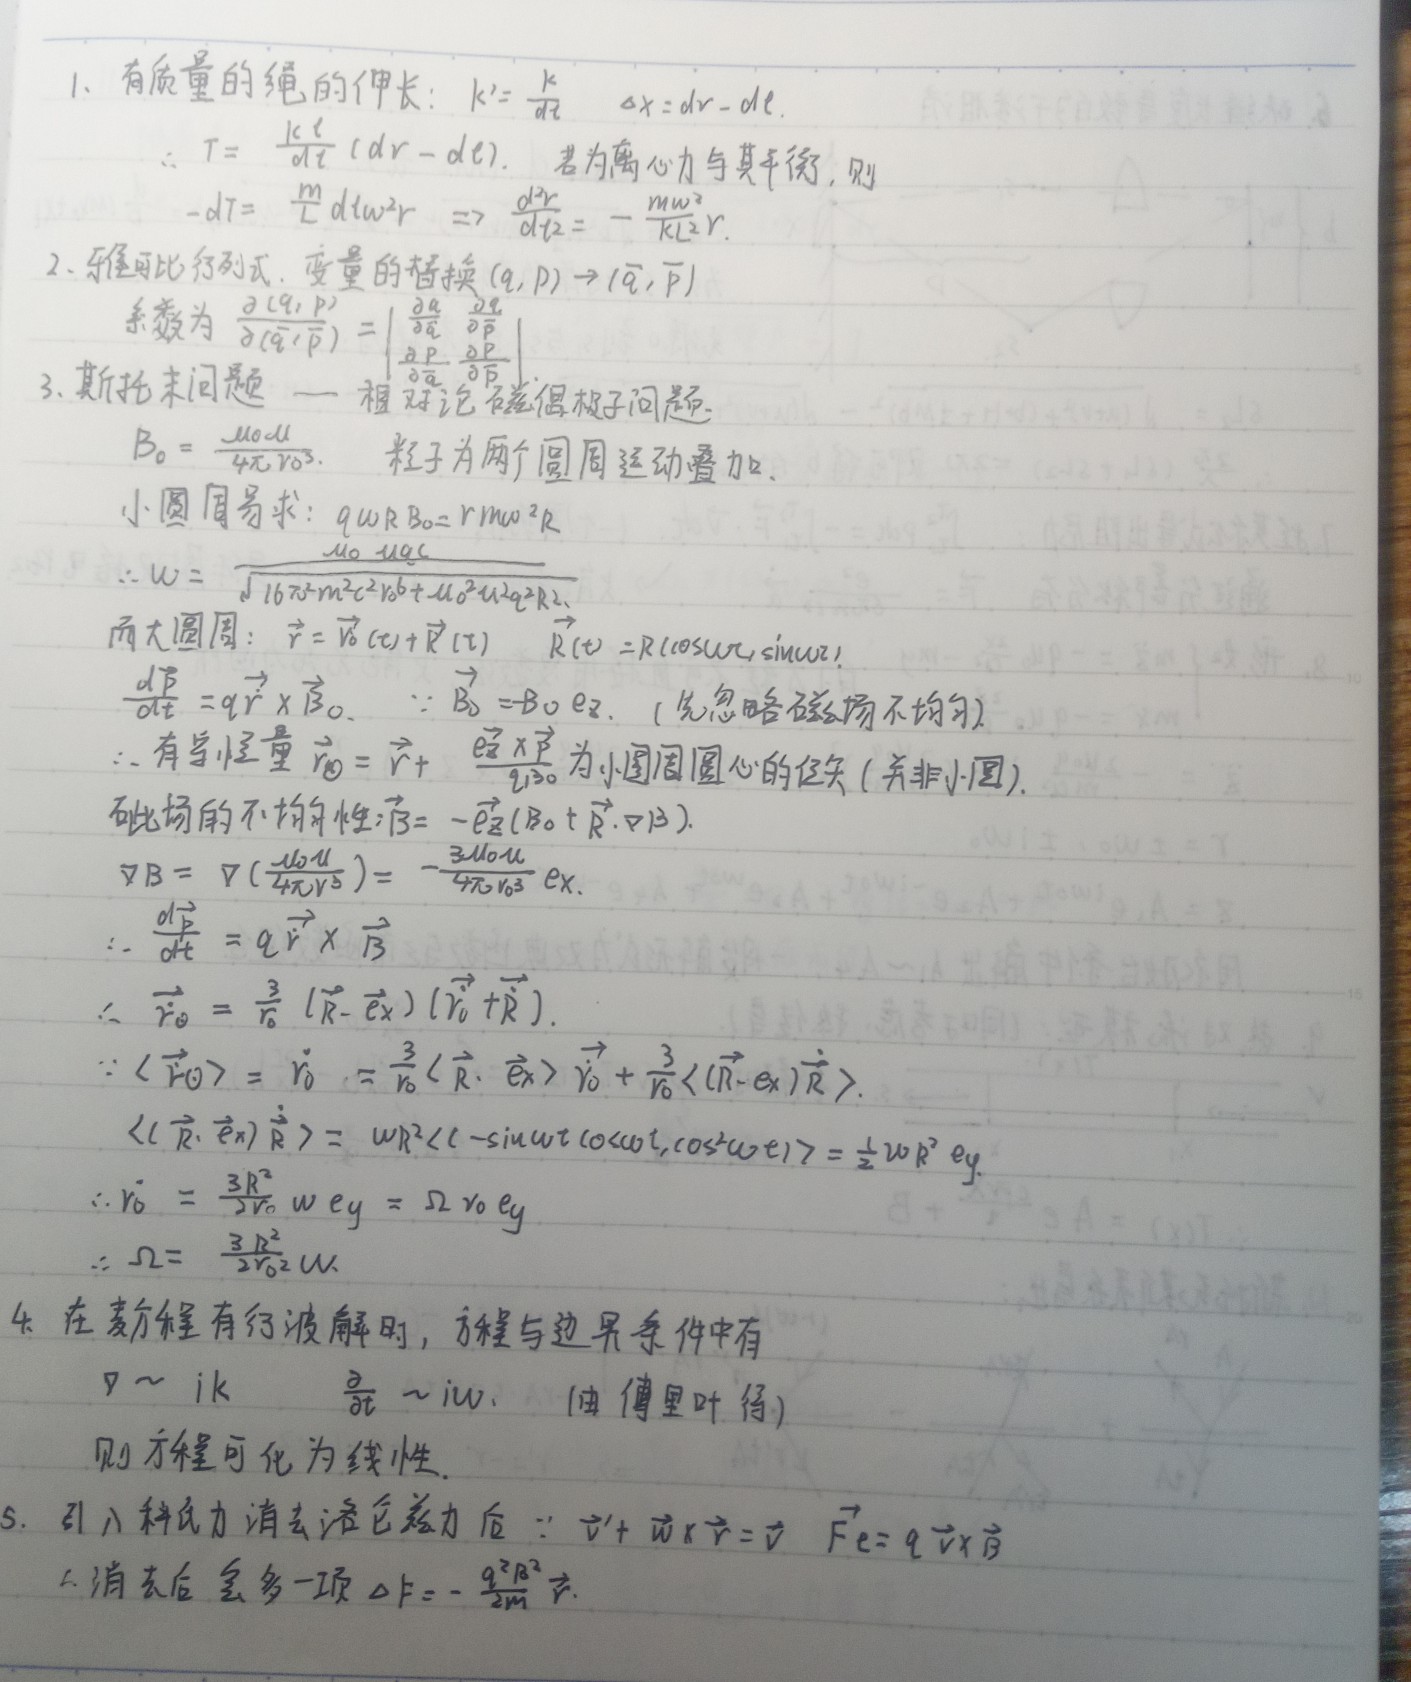 1、有质量的绳的伸长: k' = k/dl  Δx = dr - dl.
∴ T = kl/dl (dr - dl). 若为离心力与其平衡, 则
-dT = m/L dlω²r => d²r/dl² = - mω²/kL² r.
2、雅可比行列式. 变量的替换 (q, p) → (q̄, p̄)
系数为 ∂(q, p)/∂(q̄, p̄) = | ∂q/∂q̄ ∂q/∂p̄ ; ∂p/∂q̄ ∂p/∂p̄ |.
3、斯托末问题 —— 相对论磁偶极子问题.
B₀ = μ₀μ/4πr₀³. 粒子为两个圆周运动叠加.
小圆周易求: qωRB₀ = γmω²R
∴ ω = μ₀μqc/√(16π²m²c²r₀⁶ + μ₀²μ²q²R²).
而大圆周: r⃗ = r⃗₀(t) + R⃗(t)  R⃗(t) = R(cosωt, sinωt).
dp⃗/dt = qr⃗̇ × B⃗₀. ∵ B⃗₀ = -B₀ e_z. (先忽略磁场不均匀)
∴ 有守恒量 r⃗⊙ = r⃗ + e⃗_z × p⃗/qB₀ 为小圆周圆心的位矢 (并非小圆).
磁场的不均匀性: B⃗ = -e⃗_z(B₀ + R⃗·∇B).
∇B = ∇(μ₀μ/4πr³) = - 3μ₀μ/4πr₀³ e_x.
∴ dp⃗/dt = qr⃗̇ × B⃗
∴ r⃗̇⊙ = 3/r₀ (R⃗·e⃗_x)(r⃗̇₀ + R⃗̇).
∵ <r⃗̇⊙> = ṙ₀ = 3/r₀ <R⃗·e⃗_x> r⃗̇₀ + 3/r₀ <(R⃗·e_x)R⃗̇>.
<(R⃗·e⃗_x)R⃗̇> = ωR²<(-sinωt cosωt, cos²ωt)> = 1/2 ωR² e_y.
∴ ṙ₀ = 3R²/2r₀ ω e_y = Ω r₀ e_y
∴ Ω = 3R²/2r₀² ω.
4、在麦方程有行波解时, 方程与边界条件中有
∇ ~ ik  ∂/∂t ~ iω. (由傅里叶得)
则方程可化为线性.
5. 引入科氏力消去洛仑兹力后 ∵ v⃗' + ω⃗ × r⃗ = v⃗  F⃗e = qv⃗ × B⃗
∴ 消去后会多一项 ΔF = - q²B²/2m r⃗.